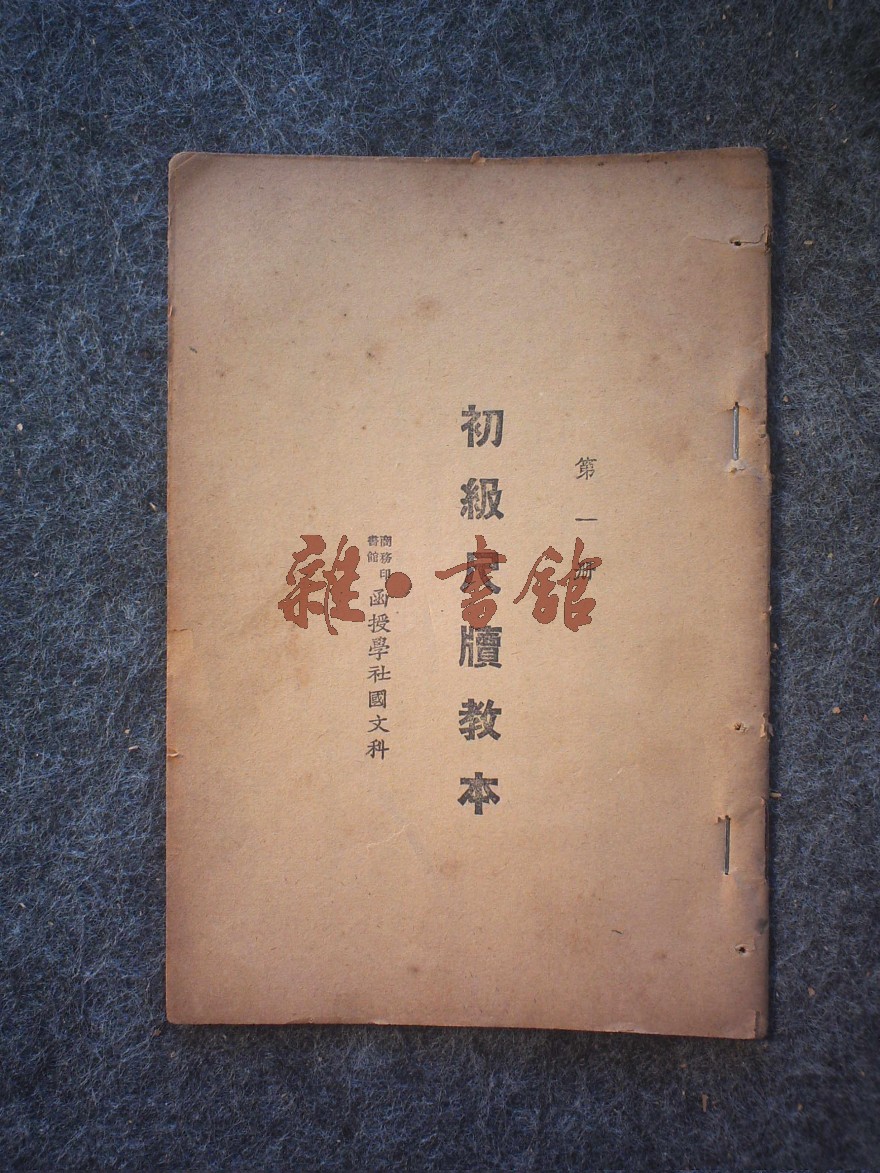 第一册
初級尺牘教本
商務印書館函授學社國文科
雜·書舘